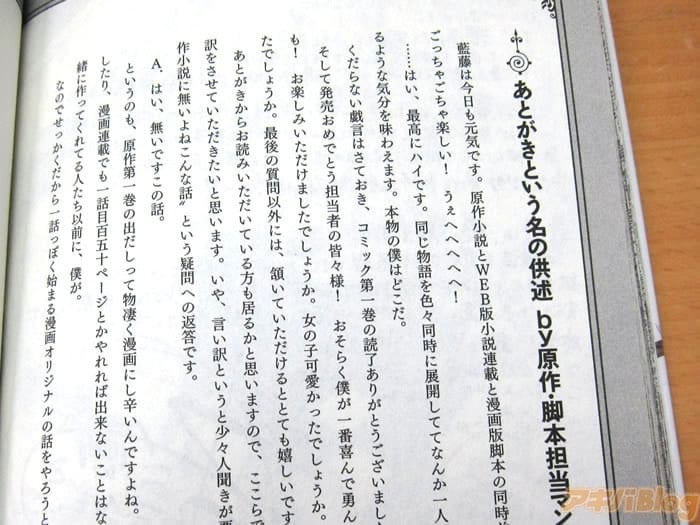 あとがきという名の供述 by原作・脚本担当マン
藍藤は今日も元気です。原作小説とWEB版小説連載と漫画版脚本の同時
ごっちゃごちゃ楽しい! うぇへへへへへ!
……はい、最高にハイです。同じ物語を色々同時に展開しててなんか一人
るような気分を味わえます。本物の僕はどこだ。
くだらない戯言はさておき、コミック第一巻の読了ありがとうございまし
そして発売おめでとう担当者の皆々様! おそらく僕が一番喜んで勇ん
も! お楽しみいただけましたでしょうか。女の子可愛かったでしょうか。
たでしょうか。最後の質問以外には、頷いていただけるととても嬉しいです
あとがきからお読みいただいている方も居るかと思いますので、ここらで
訳をさせていただきたいと思います。いや、言い訳というと少々人聞きが悪
作小説に無いよねこんな話〟という疑問への返答です。
A、はい、無いですこの話。
というのも、原作第一巻の出だしって物凄く漫画にし辛いんですよね。
したり、漫画連載でも一話目百五十ページとかやれれば出来ないことはな
緒に作ってくれてる人たち以前に、僕が。
なのでせっかくだから一話っぽく始まる漫画オリジナルの話をやろうと
アキバBlog